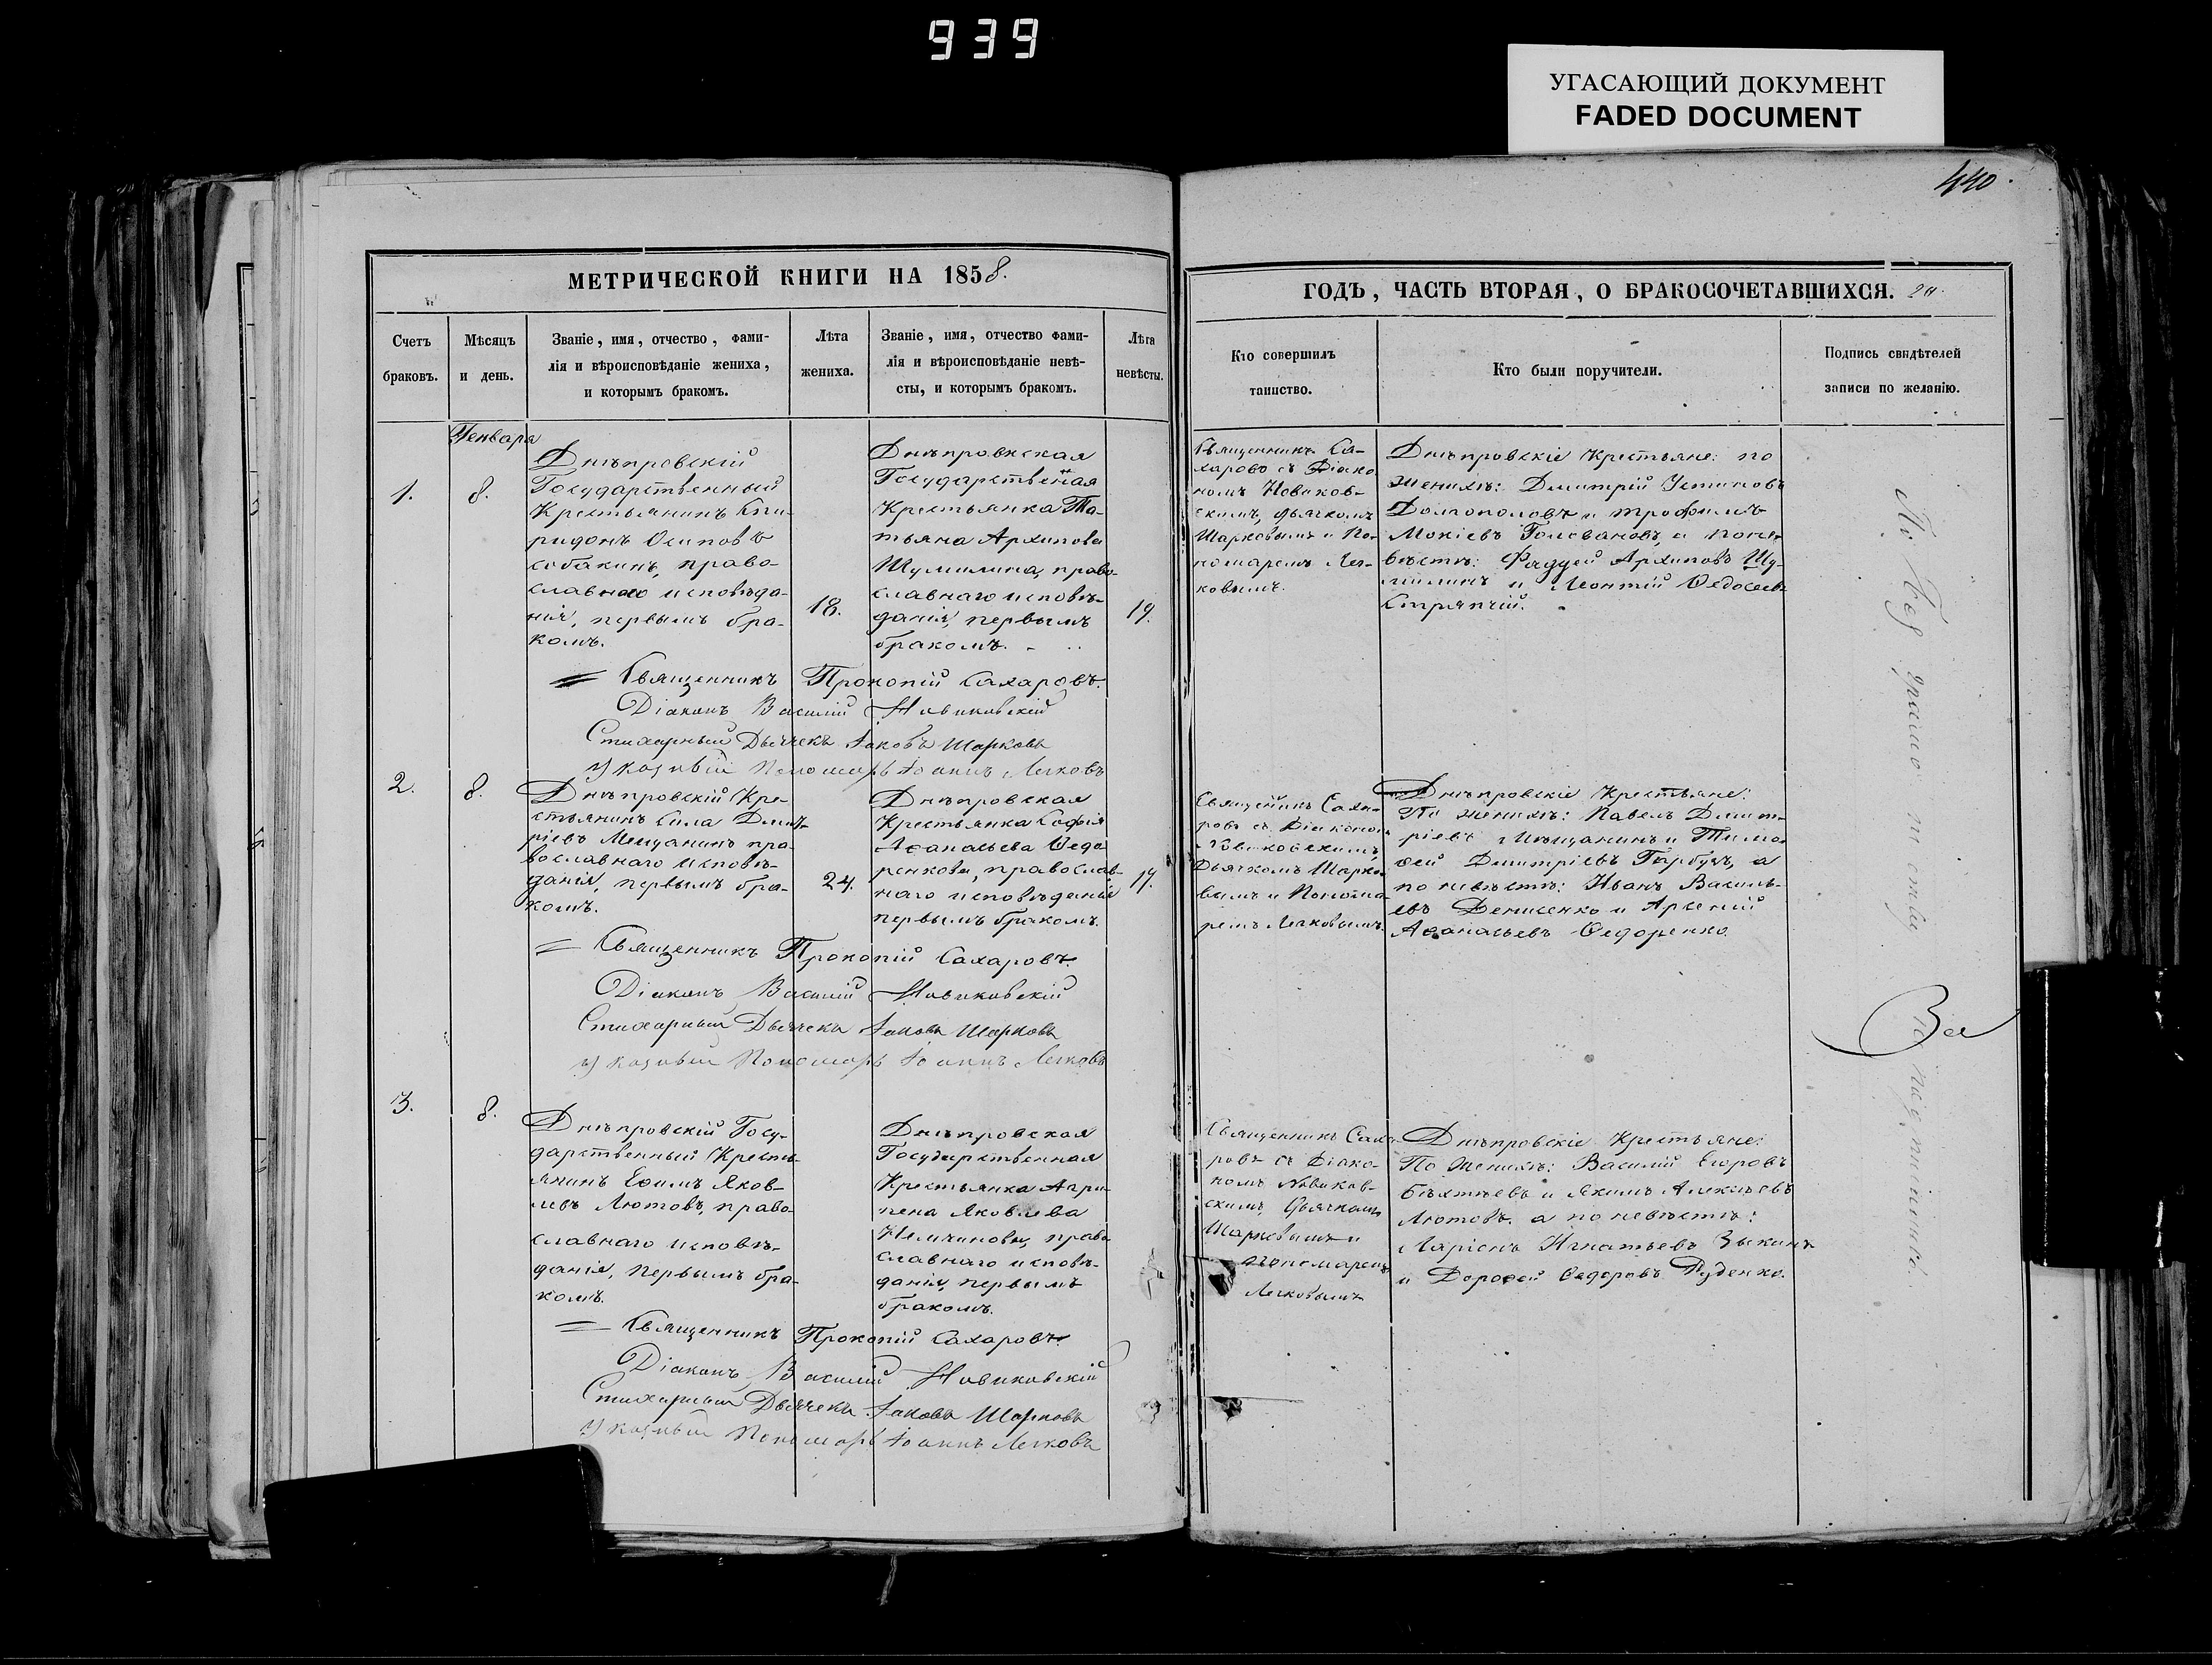 939
УГАСАЮЩИЙ ДОКУМЕНТ
FADED DOCUMENT
440.
МЕТРИЧЕСКОЙ КНИГИ НА 1858.
Счетъ
браковъ.
Мѣсяцъ
и день.
Званіе, имя, отчество, фами-
лія и вѣроисповѣданіе жениха,
и которымъ бракомъ.
Лѣта
жениха.
Званіе, имя, отчество фами-
лія и вѣроисповѣданіе невѣ-
сты, и которымъ бракомъ.
Лѣта
невѣсты.
ГОДЪ, ЧАСТЬ ВТОРАЯ, О БРАКОСОЧЕТАВШИХСЯ.
Кто совершилъ
таинство.
Кто были поручители.
Подпись свидѣтелей
записи по желанію.
Генваря
1.
8.
Днѣпровскій
Государственный
Крестьянинъ Спи-
ридонъ Осиповъ
Собакинъ, право-
славнаго исповѣда-
нія, первымъ бра-
комъ.
18.
Днѣпровская
Государственная
Крестьянка Та-
тьяна Архипова
Шумилина, право-
славнаго исповѣ-
данія, первымъ
бракомъ.
19.
Священникъ Са-
харовъ съ Діако
номъ Новиков-
скимъ, дьячкомъ
Шарковымъ и По-
номаремъ Лег-
ковымъ.
Днѣпровскіе Крестьяне: по
женихѣ: Димитрій Устиновъ
Долгополовъ и Трофимъ
Мокіевъ Головановъ, а по не-
вѣстѣ: Фаддей Архиповъ Шу-
милинъ и Леонтій Ѳедосеевъ
Стряпчій.
Священникъ Прокопій Сахаровъ.
Діаконъ Василій Новиковскій
Стихарный Дьячекъ Іаковъ Шарковъ
Указный Пономарь Іоаннъ Легковъ
2.
8.
Днѣпровскій Кре-
стьянинъ Сила Дмит-
ріевъ Мещанинъ пра-
вославнаго исповѣ-
данія, первымъ бра-
комъ.
24.
Днѣпровская
Крестьянка Софія
Аѳанасьева Ѳедо
ренкова, православ-
наго исповѣданія
первымъ бракомъ.
19.
Священникъ Саха-
ровъ съ Діакономъ
Новиковскимъ,
Дьячкомъ Шарко-
вымъ и Понома-
ремъ Легковымъ.
Днѣпровскіе Крестьяне:
По женихѣ: Павелъ Димит-
ріевъ Мѣщанинъ и Тимо-
ѳей Димитріевъ Гарбузъ, а
по невѣстѣ: Иванъ Василь-
евъ Денисенко и Арсеній
Аѳанасьевъ Ѳедоренко.
Священникъ Прокопій Сахаровъ.
Діаконъ Василій Новиковскій
Стихарный Дьячекъ Іаковъ Шарковъ
Указный Пономарь Іоаннъ Легковъ
За
3.
8.
Днѣпровскій Госу-
дарственный Кресть-
янинъ Ефимъ Яков-
левъ Лютовъ, право-
славнаго исповѣ-
данія, первымъ бра-
комъ.
Днѣпровская
Государственная
Крестьянка Агри-
пена Яковлева
Немчинова, право
славнаго исповѣ-
данія, первымъ
бракомъ.
Священникъ Саха-
ровъ съ Діако-
номъ Новиков-
скимъ, Дьячкомъ
Шарковымъ и
пономаремъ
Легковымъ
Днѣпровскіе Крестьяне:
По женихѣ: Василій Егоровъ
и Якимъ Алексѣевъ
Лютовъ. а по невѣстѣ:
Ларіонъ Игнатьевъ Зыкинъ
и Дороѳей Ѳедоровъ Руденко.
Священникъ Прокопій Сахаровъ.
Діаконъ Василій Новиковскій
Стихарный Дьячекъ Іаковъ Шарковъ
Указный Пономарь Іоаннъ Легковъ